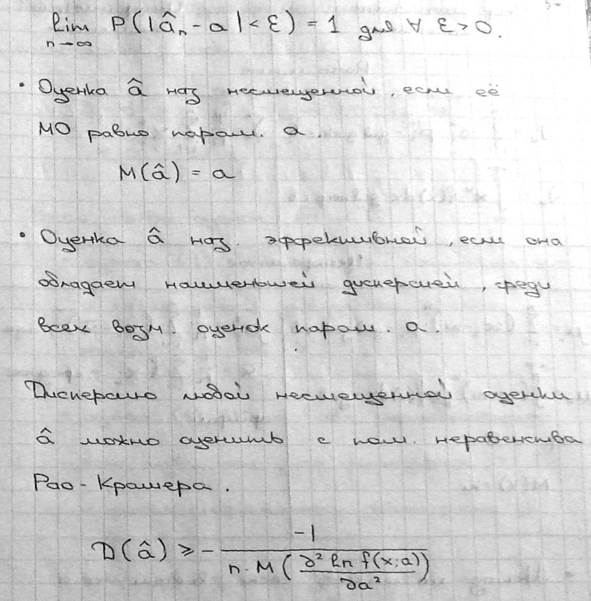 lim P(|â_n - a| < ε) = 1 для ∀ ε > 0.
n→∞
• Оценка â наз несмещенной, если её
МО равно парам. a.
M(â) = a
• Оценка â наз. эффективной, если она
обладает наименьшей дисперсией, среди
всех возм. оценок парам. a.
Дисперсию любой несмещенной оценки
â можно оценить с пом. неравенства
Рао-Крамера.
D(â) ≥ - -1 / (n · M(∂² ln f(x;a) / ∂a²))